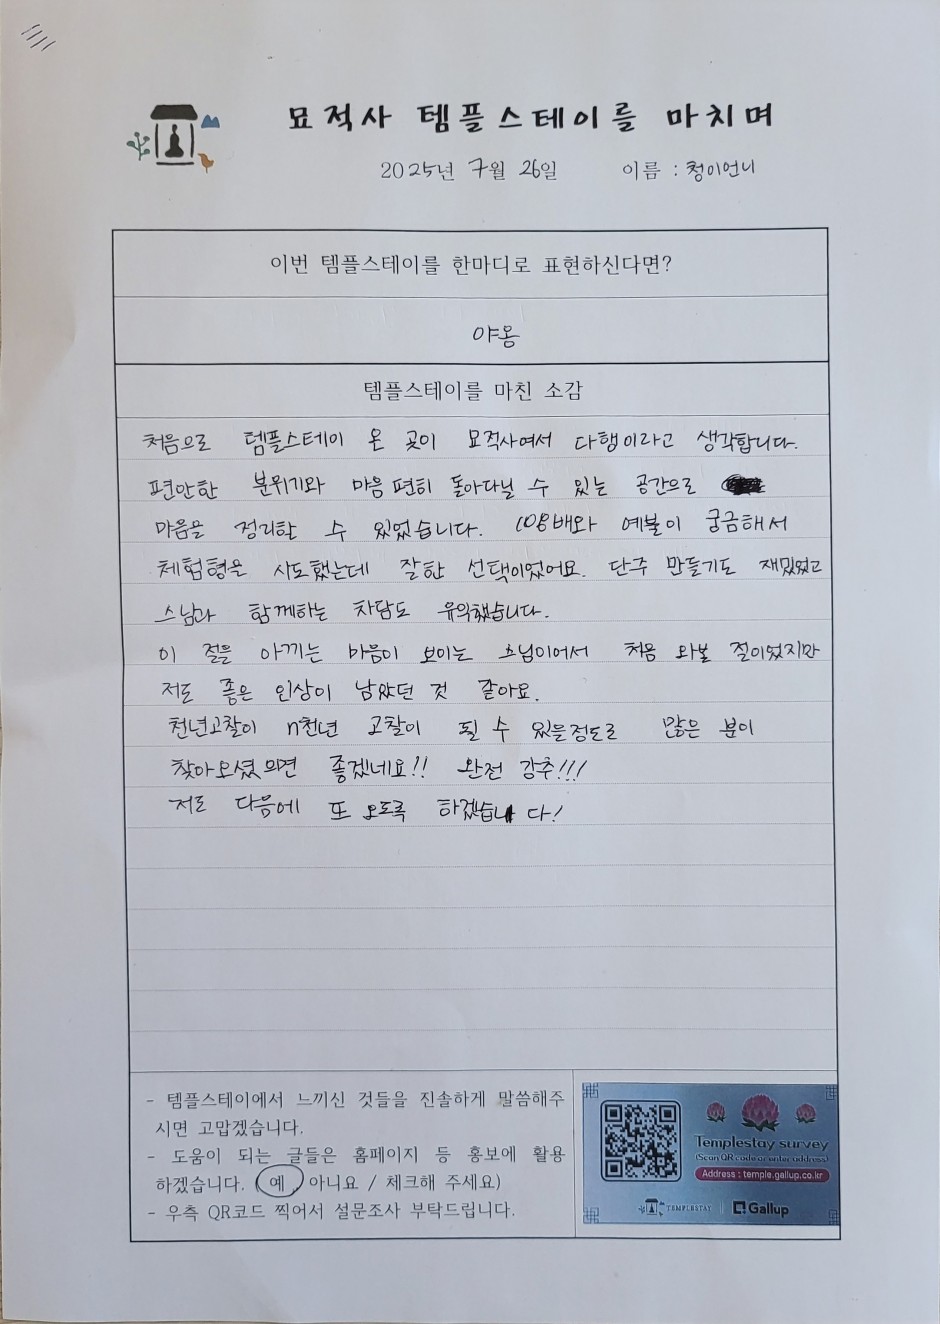 묘적사 템플스테이를 마치며
2025년 7월 26일 이름 : 청이언니
이번 템플스테이를 한마디로 표현하신다면?
야옹
템플스테이를 마친 소감
처음으로 템플스테이 온 곳이 묘적사여서 다행이라고 생각합니다.
편안한 분위기와 마음 편히 돌아다닐 수 있는 공간으로
마음을 정리할 수 있었습니다. 108배와 예불이 궁금해서
체험형을 시도했는데 잘한 선택이었어요. 단주 만들기도 재밌었고
스님과 함께하는 차담도 유익했습니다.
이 절을 아끼는 마음이 보이는 스님이어서 처음 와본 절이었지만
저도 좋은 인상이 남았던 것 같아요.
천년고찰이 n천년 고찰이 될 수 있을정도로 많은 분이
찾아오셨으면 좋겠네요!! 완전 강추!!!
저도 다음에 또 오도록 하겠습니다!
- 템플스테이에서 느끼신 것들을 진솔하게 말씀해주
시면 고맙겠습니다.
- 도움이 되는 글들은 홈페이지 등 홍보에 활용
하겠습니다. ( 예 , 아니요 / 체크해 주세요)
- 우측 QR코드 찍어서 설문조사 부탁드립니다.
Templestay survey
(Scan QR code or enter address)
Address : temple.gallup.co.kr
TEMPLESTAY | Gallup